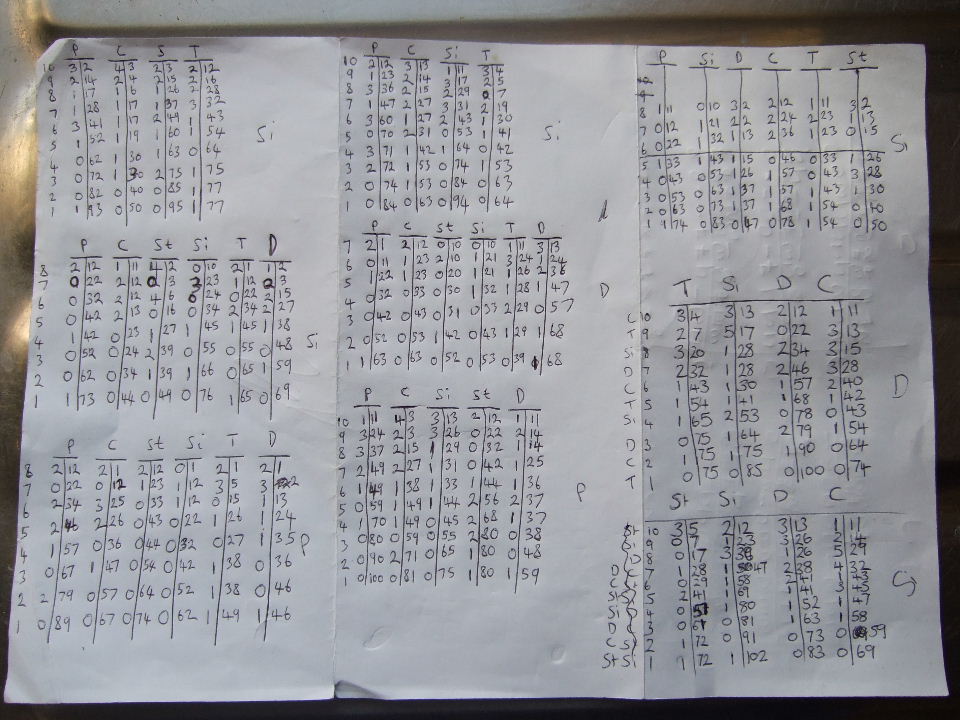 P C S T
10 3 2 4 3 2 3 2 12
9 2 14 2 4 2 15 2 16
8 1 17 1 6 1 26 2 28
7 1 28 1 17 1 37 3 32
6 3 41 1 17 2 49 1 43
5 1 52 1 19 1 60 1 54
4 0 62 1 30 1 63 0 64
3 0 72 1 30 2 75 1 75
2 0 82 0 40 0 85 1 77
1 1 93 0 50 0 95 1 77
Si
P C St Si T D
8 2 12 1 11 4 2 0 10 2 1 1 2
7 0 22 2 12 0 3 2 23 1 12 0 2
6 0 32 2 12 4 6 0 24 0 22 2 15
5 0 42 2 13 0 16 0 34 2 34 2 27
4 1 42 0 23 1 27 1 45 1 45 1 38
3 0 52 0 24 2 39 0 55 0 55 0 48
2 0 62 0 34 1 39 1 66 0 65 1 59
1 1 73 0 44 0 49 0 76 1 65 0 69
Si
P C St Si T D
8 2 12 2 1 2 12 0 1 2 1 2 1
7 0 22 0 12 1 23 1 12 3 5 3 2
6 2 34 3 25 0 33 1 12 0 15 1 13
5 2 46 2 26 0 43 0 22 1 26 1 24
4 1 57 0 36 0 44 0 32 0 27 1 35
3 0 67 1 47 0 54 0 42 1 38 0 36
2 2 79 0 57 0 64 0 52 1 38 0 46
1 0 89 0 67 0 74 0 62 1 49 1 46
P
P C Si T
10 2 12 2 13 1 11 3 4
9 1 23 2 14 1 17 2 5
8 3 36 2 15 2 29 0 7
7 1 47 2 27 3 31 2 19
6 3 60 1 27 2 43 1 30
5 0 70 2 31 0 53 1 41
4 3 71 1 42 1 64 0 42
3 2 72 1 53 0 74 1 53
2 0 74 1 53 0 84 0 63
1 0 84 0 63 0 94 0 64
Si
P C St Si T D
7 2 1 2 12 0 10 0 10 1 11 3 13
6 0 11 1 23 2 10 1 21 3 24 1 24
5 1 22 1 23 0 20 1 21 1 26 2 36
4 0 32 0 33 0 30 1 32 1 28 1 47
3 0 42 0 43 0 31 0 33 2 29 0 57
2 0 52 0 53 1 42 0 43 1 29 1 68
1 1 63 0 63 0 52 0 53 0 39 1 68
D
P C Si St D
10 1 11 4 3 3 13 2 12 1 11
9 3 24 2 3 3 26 0 22 2 14
8 3 37 2 15 1 29 0 32 1 14
7 2 49 2 27 1 31 0 42 1 25
6 1 49 1 38 1 33 1 44 1 36
5 0 59 1 49 1 44 2 56 2 37
4 1 70 1 49 0 45 2 68 1 37
3 0 80 0 59 0 55 2 80 0 38
2 0 90 2 71 0 65 1 80 0 48
1 0 100 0 81 0 75 1 80 1 59
P
P Si D C T St
8 1 11 0 10 3 2 2 12 1 11 3 2
7 0 12 1 21 2 2 2 24 2 23 1 13
6 0 22 1 32 1 13 2 36 1 23 0 15
5 1 33 1 43 1 15 0 46 0 33 1 26
4 0 43 0 53 1 26 1 57 0 43 3 28
3 0 53 0 63 1 37 1 57 1 43 1 30
2 0 63 0 73 1 37 1 68 1 54 0 40
1 1 74 0 83 0 47 0 78 1 54 0 50
Si
T Si D C
C 10 3 4 3 13 2 12 1 11
T 9 2 7 5 17 0 22 3 13
Si 8 3 20 1 28 2 34 3 15
D 7 2 32 1 28 2 46 3 28
C 6 1 43 1 30 1 57 2 40
T 5 1 54 1 41 1 68 1 42
Si 4 1 65 2 53 0 78 0 43
D 3 0 75 1 64 2 79 1 54
C 2 1 75 1 75 1 90 0 64
T 1 0 75 0 85 0 100 0 74
D
St Si D C
St 10 3 5 2 12 3 13 1 11
9 23 3 26 2 14
8 0 17 1 26 5 29
7 1 28 47 2 38 4 32
6 0 29 1 58 2 41 1 43
5 2 41 1 69 1 41 3 45
Si 4 0 1 80 1 52 1 47
D 3 0 0 81 1 63 1 58
C 2 1 72 0 91 0 73 0 59
St Si 1 1 72 1 102 0 83 0 69